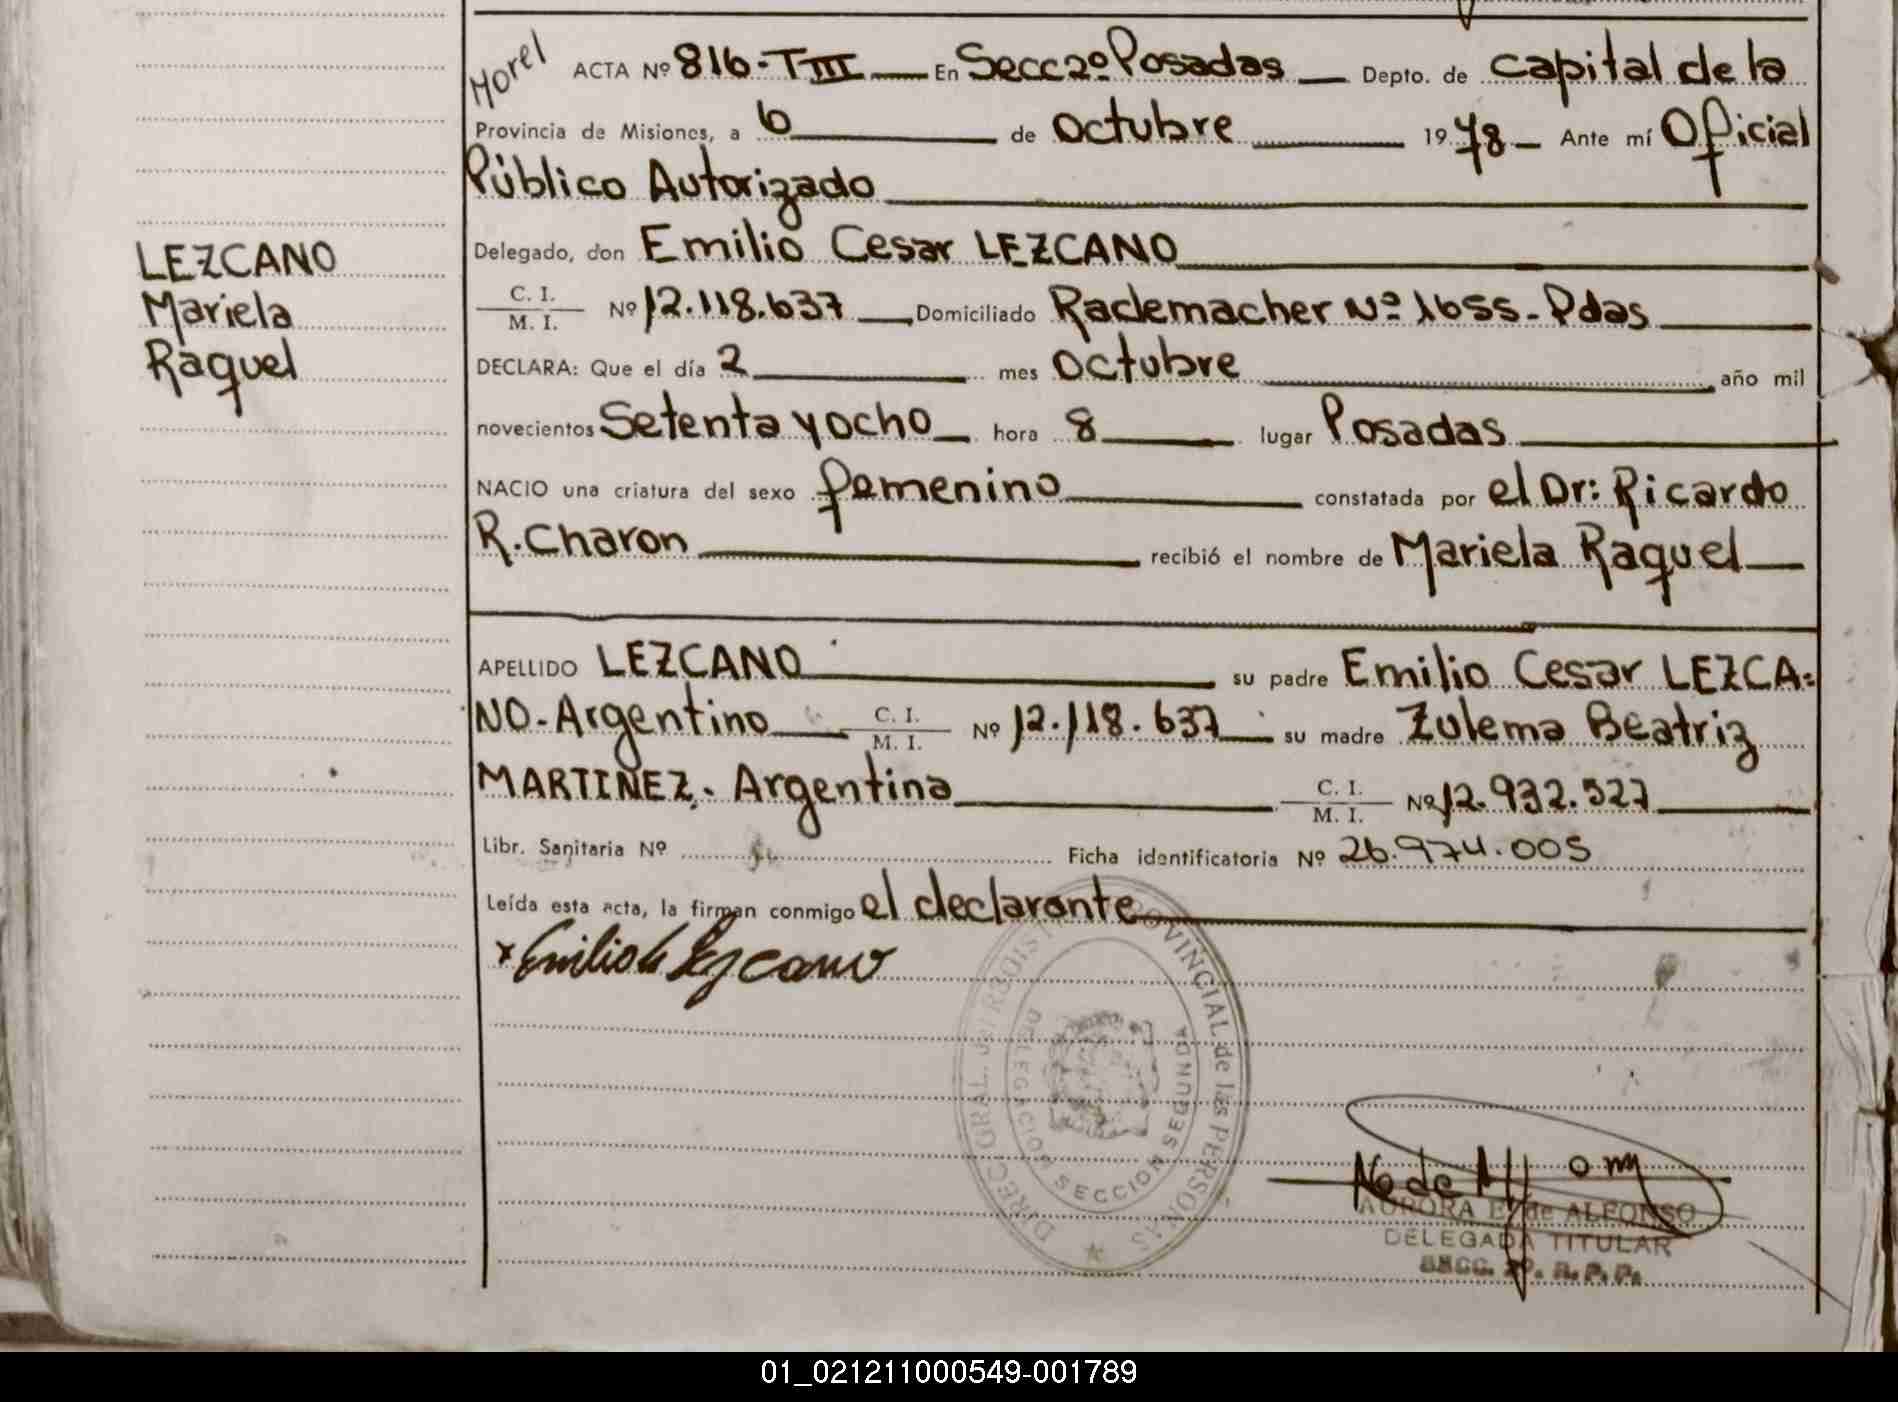 Morel
ACTA Nº 816-TIII En Secc 2º Posadas Depto. de capital de la
Provincia de Misiones, a 6 de octubre 1978 Ante mí Oficial
Público Autorizado
Delegado, don Emilio Cesar LEZCANO
LEZCANO
Mariela
Raquel
C. I.
M. I. Nº 12.118.637 Domiciliado Rademacher Nº 1655 - Pdas
DECLARA: Que el día 2 mes octubre año mil
novecientos Setenta y ocho hora 8 lugar Posadas
NACIO una criatura del sexo femenino constatada por el Dr: Ricardo
R. Charon recibió el nombre de Mariela Raquel
APELLIDO LEZCANO su padre Emilio Cesar LEZCA=
NO - Argentino C. I. M. I. Nº 12.118.637 su madre Zulema Beatriz
MARTINEZ. Argentina C. I. M. I. Nº 12.932.527
Libr. Sanitaria Nº Ficha identificatoria Nº 26.974.005
Leída esta acta, la firman conmigo el declarante
x Emilio C Lezcano
PROVINCIAL de las PERSONAS
DELEGACION SECCION SEGUNDA
AURORA E. de ALFONSO
DELEGADA TITULAR
SECC. 2º. R. P. P.
01_021211000549-001789